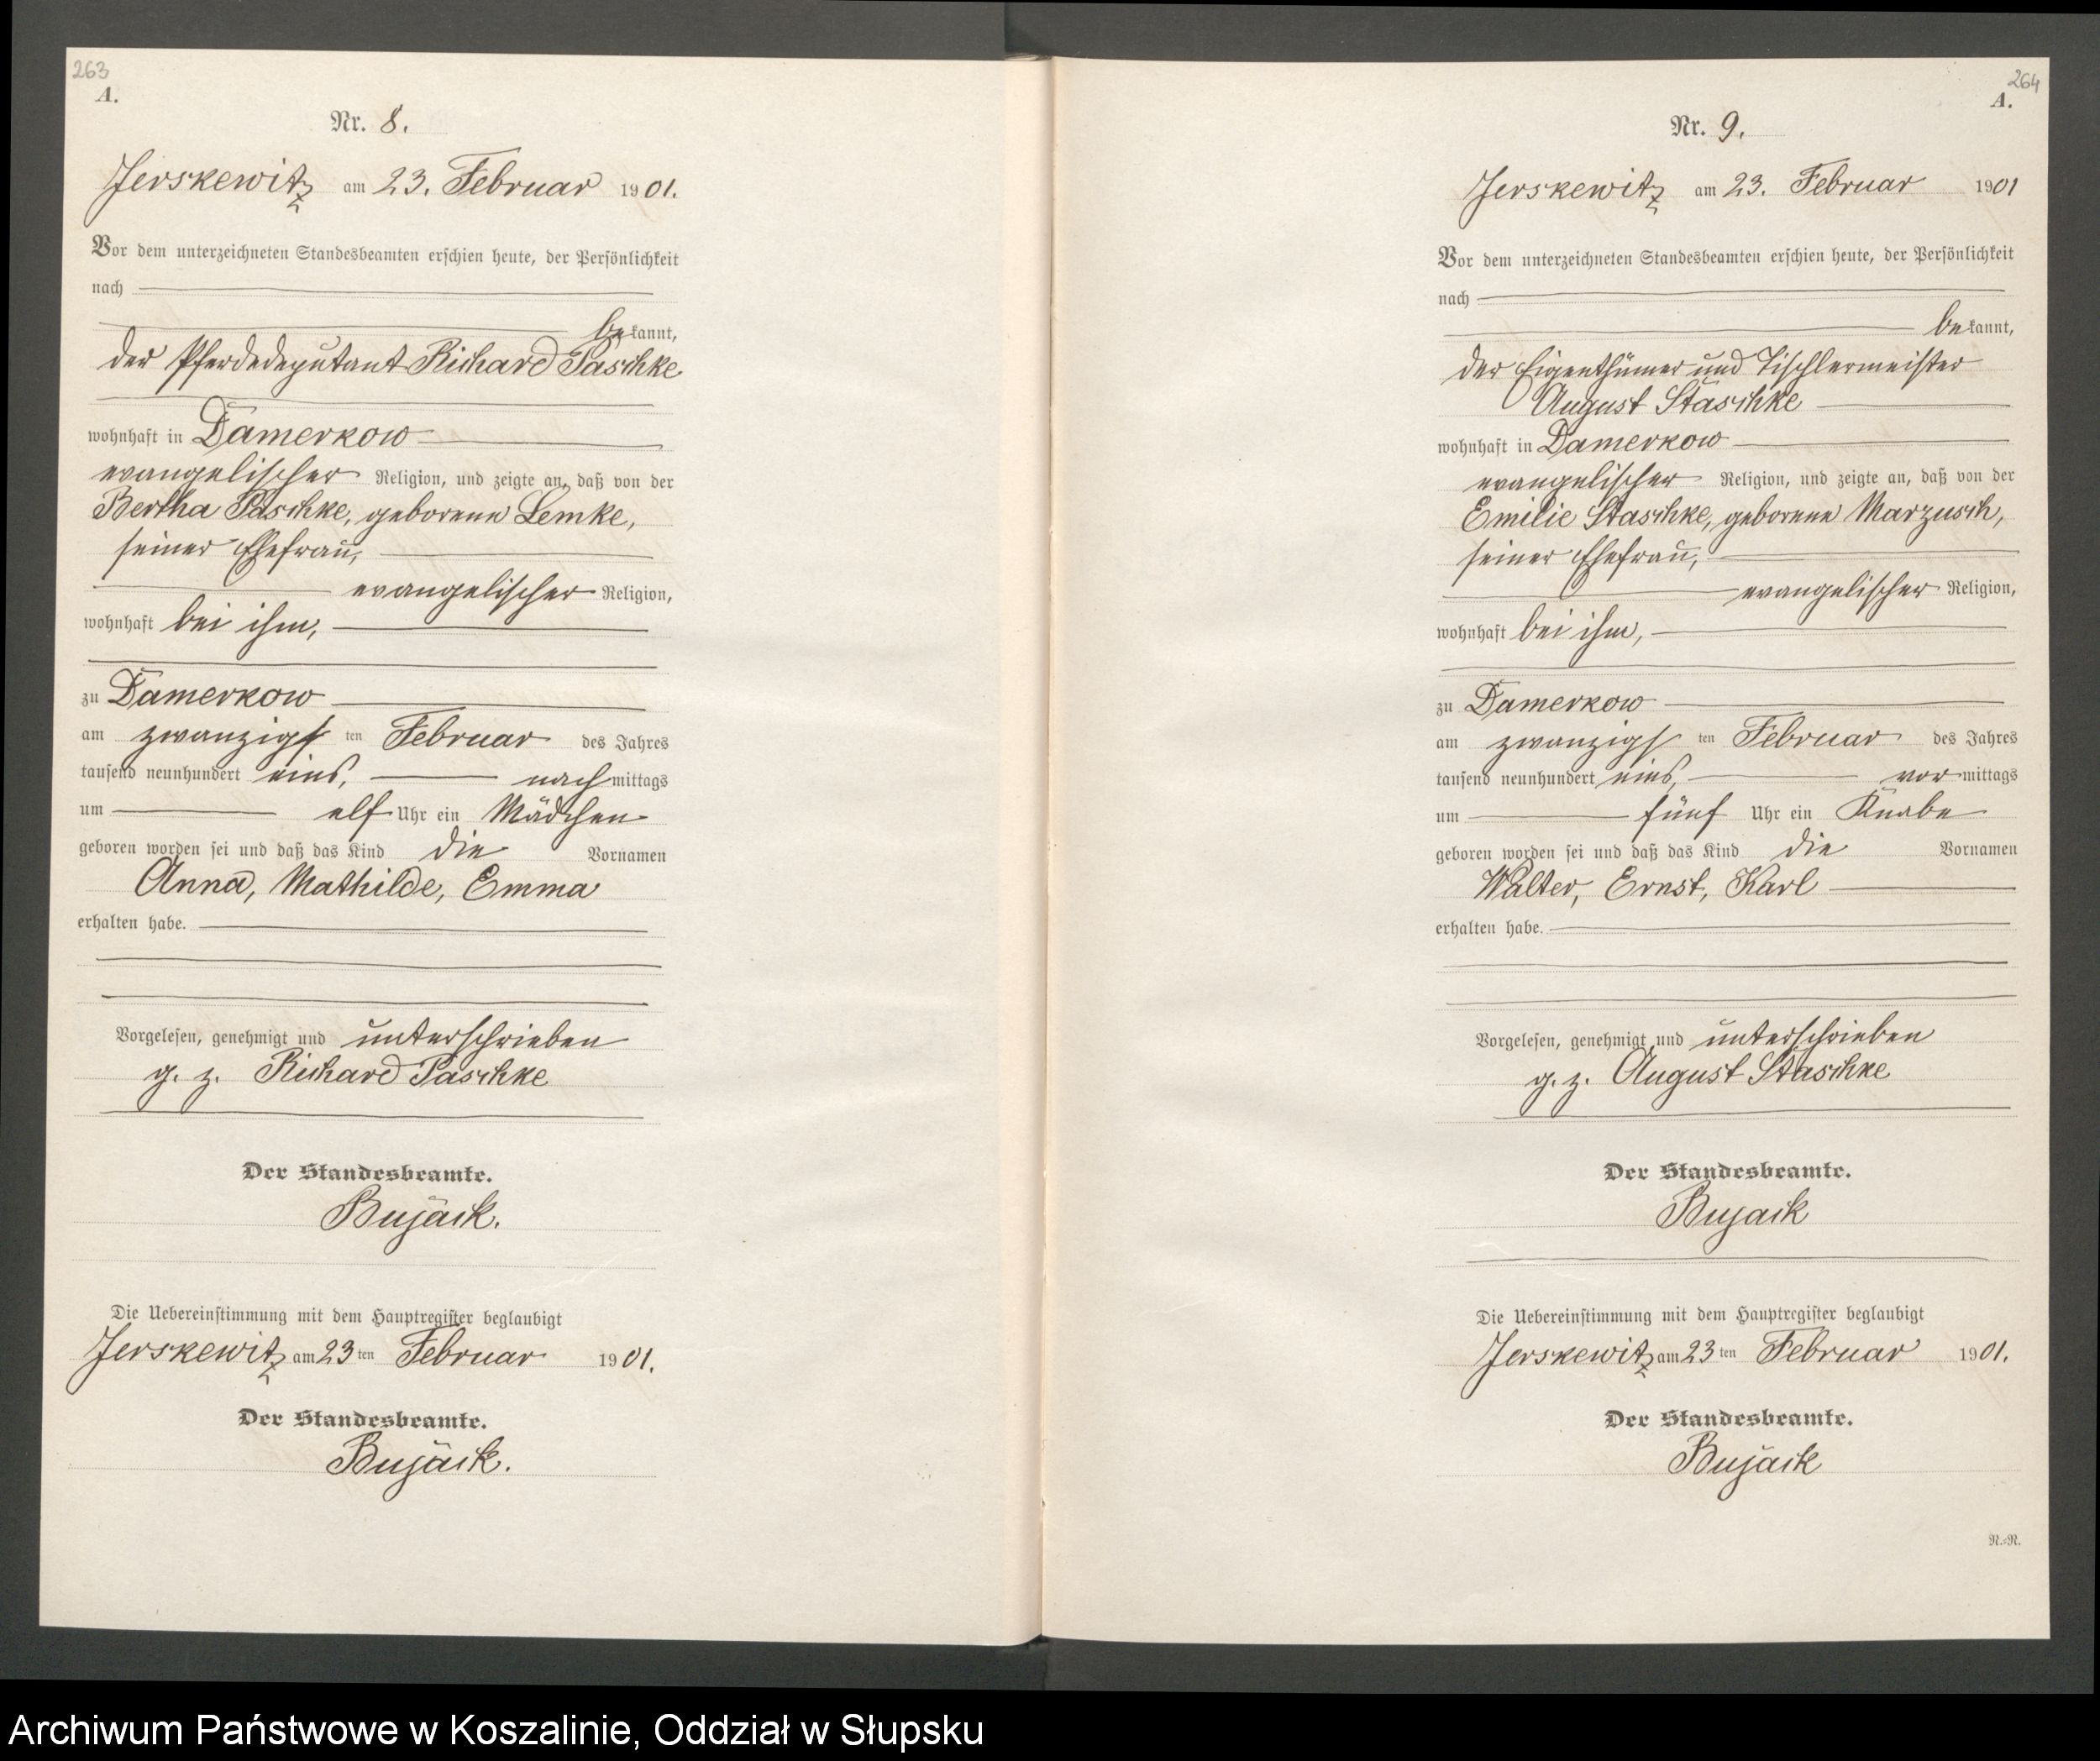 263
A.
Nr. 8.
Jerskewitz am 23. Februar 1901.
Vor dem unterzeichneten Standesbeamten erschien heute, der Persönlichkeit
nach
bekannt,
der Pferdedeputant Richard Paschke
wohnhaft in Damerkow
evangelischer Religion, und zeigte an, daß von der
Bertha Paschke, geborene Lemke,
seiner Ehefrau,
evangelischer Religion,
wohnhaft bei ihm,
zu Damerkow
am zwanzigsten Februar des Jahres
tausend neunhundert eins, nachmittags
um elf Uhr ein Mädchen
geboren worden sei und daß das Kind die Vornamen
Anna, Mathilde, Emma
erhalten habe.
Vorgelesen, genehmigt und unterschrieben
g. z. Richard Paschke
Der Standesbeamte.
Bujack.
Die Uebereinstimmung mit dem Hauptregister beglaubigt
Jerskewitz am 23ten Februar 1901.
Der Standesbeamte.
Bujack.
264
A.
Nr. 9.
Jerskewitz am 23. Februar 1901
Vor dem unterzeichneten Standesbeamten erschien heute, der Persönlichkeit
nach
bekannt,
der Eigenthümer und Tischlermeister
August Staschke
wohnhaft in Damerkow
evangelischer Religion, und zeigte an, daß von der
Emilie Staschke, geborene Marzusch,
seiner Ehefrau,
evangelischer Religion,
wohnhaft bei ihm,
zu Damerkow
am zwanzigsten Februar des Jahres
tausend neunhundert eins, vormittags
um fünf Uhr ein Knabe
geboren worden sei und daß das Kind die Vornamen
Walter, Ernst, Karl
erhalten habe.
Vorgelesen, genehmigt und unterschrieben
g. z. August Staschke
Der Standesbeamte.
Bujack
Die Uebereinstimmung mit dem Hauptregister beglaubigt
Jerskewitz am 23ten Februar 1901.
Der Standesbeamte.
Bujack
R.=R.
Archiwum Państwowe w Koszalinie, Oddział w Słupsku